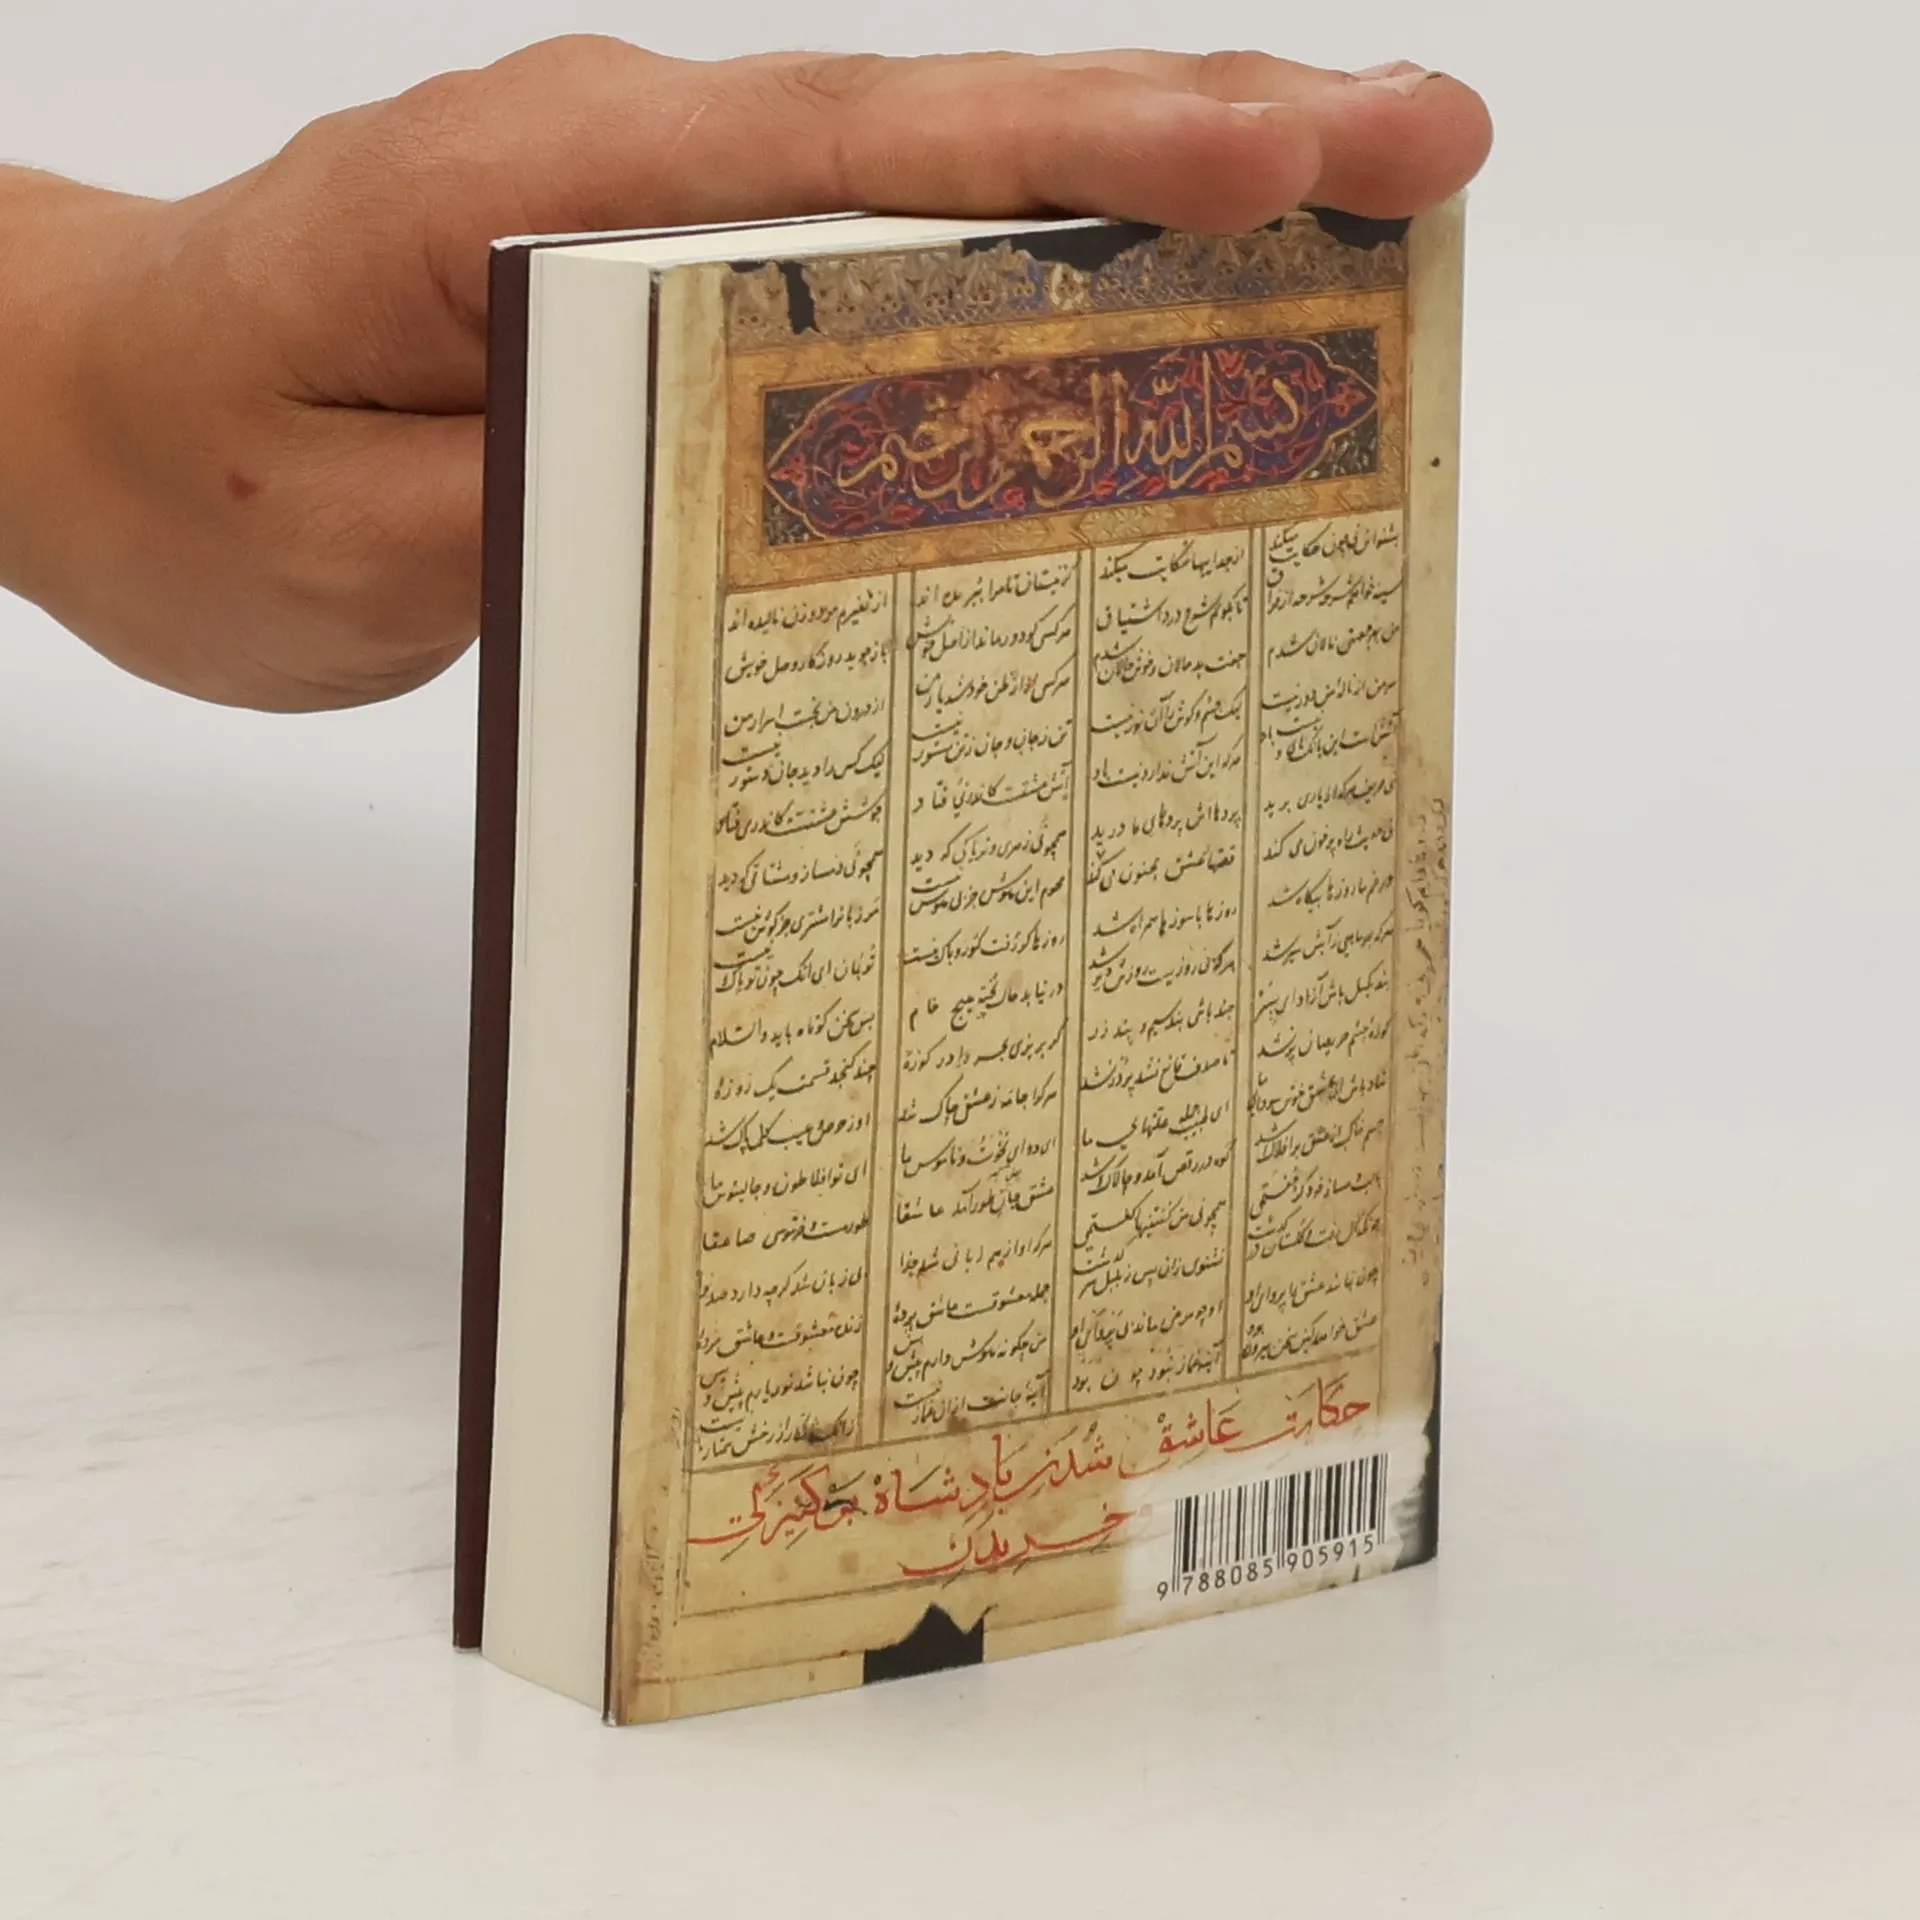 بسم الله الرحمن الرحيم
بشنو از نی چون حکایت میکند از جداییها شکایت میکند کز نیستان تا مرا ببریده اند از نفیرم مرد و زن نالیده اند
سینه خواهم شرحه شرحه از فراق تا بگویم شرح درد اشتیاق هر کسی کو دور ماند از اصل خویش باز جوید روزکار وصل خویش
من بهر جمعیتی نالان شدم جفت بد حالان و خوش حالان شدم هر کسی از ظن خود شد یار من از درون من نجست اسرار من
سر من از نالۀ من دور نیست لیک چشم و کوش را آن نور نیست تن ز جان و جان ز تن مستور نیست لیک کس را دید جان دستور نیست
آتش است این بانک نای و نیست باد هر که این آتش ندارد نیست باد آتش عشقست کاندر نی فتاد جوشش عشقست کاندر می فتاد
نی حریف هر که از یاری برید پردهااش پردهای ما درید همچو نی زهری و تریاکی که دید همچو نی دمساز و مشتاقی که دید
نی حدیث راه پر خون می کند قصهاء عشق مجنون می کند محرم این هوش جز بی هوش نیست مر زبانرا مشتری جز کوش نیست
در غم ما روزها بیکاه شد روزها با سوزها همراه شد روزها کر رفت کو رو باک نیست تو بمان ای انک چون تو پاک نیست
هر که جز ماهی ز آبش سیر شد هرکه بی روزیست روزش دیر شد در نیابد حال پخته هیچ خام پس سخن کوتاه باید والسلام
بند بکسل باش آزاد ای پسر چند باشی بند سیم و بند زر کر بریزی بحر را در کوزۀ چند کنجد قسمت یک روزۀ
کوزۀ چشم حریصان پر نشد تا صدف قانع نشد پر در نشد هرکرا جامه ز عشقی چاک شد او ز حرص و عیب کلی پاک شد
شاد باش ای عشق خوش سودای ما ای طبیب جمله علتهای ما ای دوای نخوت و ناموس ما ای تو افلاطون و جالینوس ما
جسم خاک از عشق بر افلاک شد کوه در رقص آمد و چالاک شد عشق جان طور آمد عاشقا طور مست و خر موسی صاعقا
با لب دمساز خود کر جفتمی همچو نی من کفتنیها کفتمی هرکه او از هم زبانی شد جدا بی زبان شد کرچه دارد صد نوا
چونک کل رفت و کلستان در کذشت نشنوی زان پس ز بلبل سر کذشت جمله معشوقست و عاشق پردۀ زنده معشوقست و عاشق مردۀ
چون نباشد عشق را پروای او او چو مرغی ماند بی پر وای او من چکونه هوش دارم پیش و پس چون نباشد نور یارم پیش و پس
عشق خواهد کین سخن بیرون بود آینه غماز نبود چون بود آینۀ جانت از ان غماز نیست زانک زنکار از رخش ممتاز نیست
حکایت عاشق شدن پادشاه بر کنیزکی
و خریدن
9 788085 905915